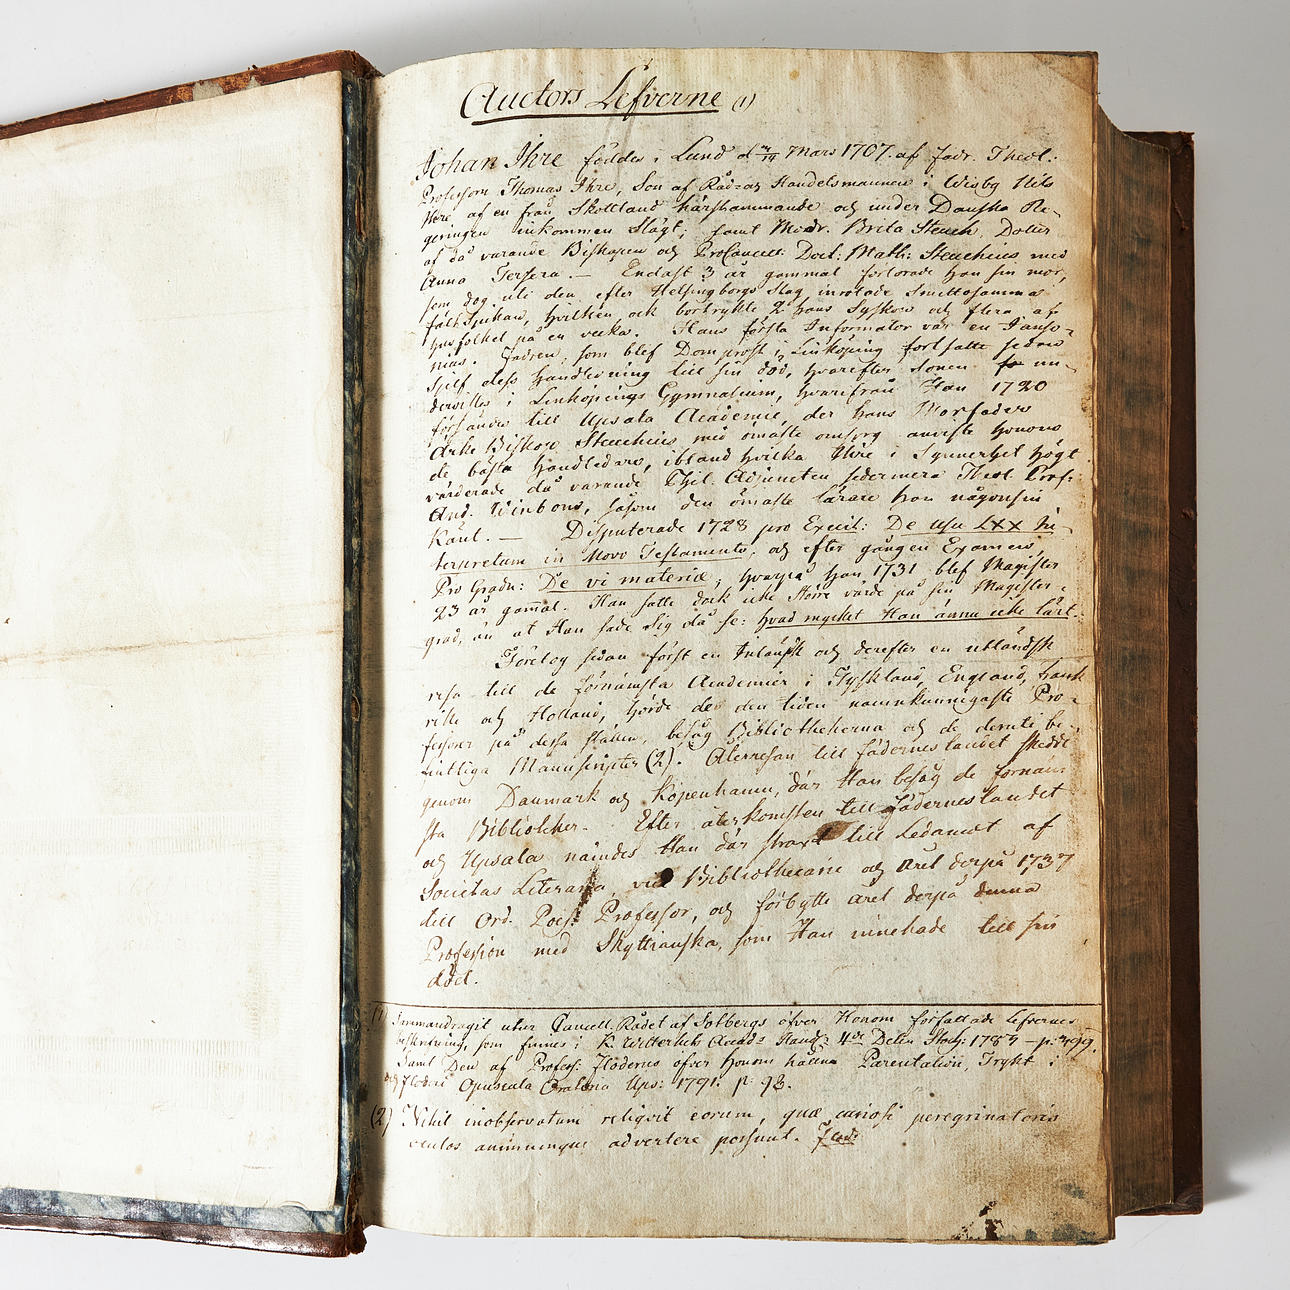 Auctors Lefverne (1)
Johan Ihre föddes i Lund d. 3/14 Mars 1707. af Fadr. Theol.:
Professorn Thomas Ihre, Son af Råd= och Handelsmannen i Wisby Nils
Ihre af en från Skottland härstammande och under Danska Re-
geringen inkommen Slägt; samt Modr. Brita Steuch, Dotter
af då varande Biskopen och Procancell: Doct: Math: Steuchius med
Anna Tersera. — Endast 3 år gammal förlorade han sin mor,
som dog uti den efter Helsingborgs Slag inrotade Smittosamma
fältsjukan, hvilken ock bortryckte 2 hans Syskon och flera af
husfolket på en vecka. Hans första Informator var en Janso-
nius. Fadren, som blef Domprost i Linköping fortsatte sedan
sjelf dess handledning till sin död, hvarefter sonen un-
dervistes i Linköpings Gymnasium, hvarifrån Han 1720
försändes till Upsala Academie, der hans Morfader
Ärke Biskop Steuchius med ömaste omsorg anviste honom
de bästa handledare, ibland hvilka Ihre i Synnerhet högt
värderade då varande Phil. Adjuncten sedermera Theol. Prof:
And. Winbom, såsom den ömaste lärare han någonsin
känt. — Disputerade 1728 pro Exercit: De usu LXX In-
terpretum in Novo Testamento, och efter gången Examen,
Pro Gradu: De vi materiæ; hvarpå han 1731 blef Magister
23 år gamal. Han satte dock icke större värde på sin Magister-
grad, än at Han sade Sig då se: hvad mycket Han ännu icke lärt.
Företog sedan först en Inländsk och derefter en utländsk
resa till de förnämsta Academier i Tyskland, England, Frank
rike och Holland, hörde der den tiden namnkunnigaste Pro-
fessorer på dessa ställen, besåg Bibliothekerna och de deruti be-
fintliga Manuscripter (2). Återresan till fäderneslandet skedde
genom Danmark och Köpenhamn, där Han besåg de förnäm-
sta Bibliotheker. Efter återkomsten till Fäderneslandet
och Upsala nämdes Han där strax till Ledamot af
Societas Literaria, vice Bibliothecarie och året derpå 1737
till Ord. Poës. Professor, och förbytte året derpå denna
Profession med Skyttianska, som Han innehade till sin
död.
(1) Sammandragit utur Cancell. Rådet af Solbergs öfver Honom författade Lefvernes
beskrifning, som finnes i K. Witterhets Acad:s Handl:r 4de Delen Stock: 1783 — p:
Samt Den af Profess: Floderus öfver honom hållna Parentation, Tryckt i
Floderi Opuscula Oratoria Ups: 1791. p. 93.
(2) Nihil inobservatum reliqvit eorum, quæ curiosi peregrinatoris
oculos animumque advertere possunt. Flod: